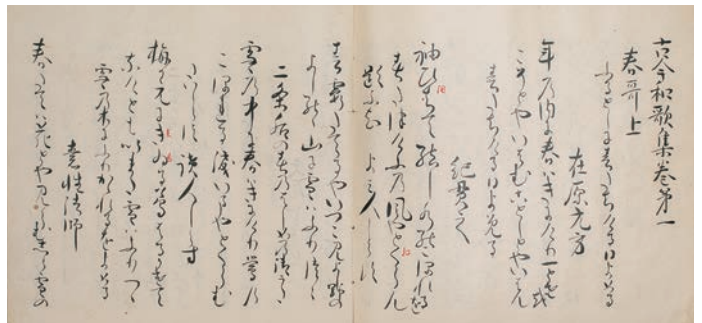 古今和歌集巻第一
春哥上
ふるとしに春たちける日よめる
在原元方
年の内に春はきにけり一とせを
こそとやいはむことしとやいはん
春たちける日よめる
紀貫之
袖ひちてむすひし水のこほれるを
春たつけふの風やとくらん
題しらす よみ人しらす
春霞たてるやいつこみよしのゝ
よしのゝ山に雪はふりつゝ
二条后の春のはしめの御うた
雪の中に春はきにけり鶯の
こほれる涙いまやとくらむ
題しらす 読人しらす
梅かえにきゐる鶯はるかけて
なけともいまた雪はふりつゝ
雪の木にふりかゝれるをよめる
素性法師
春たては花とや見らむ白雪の